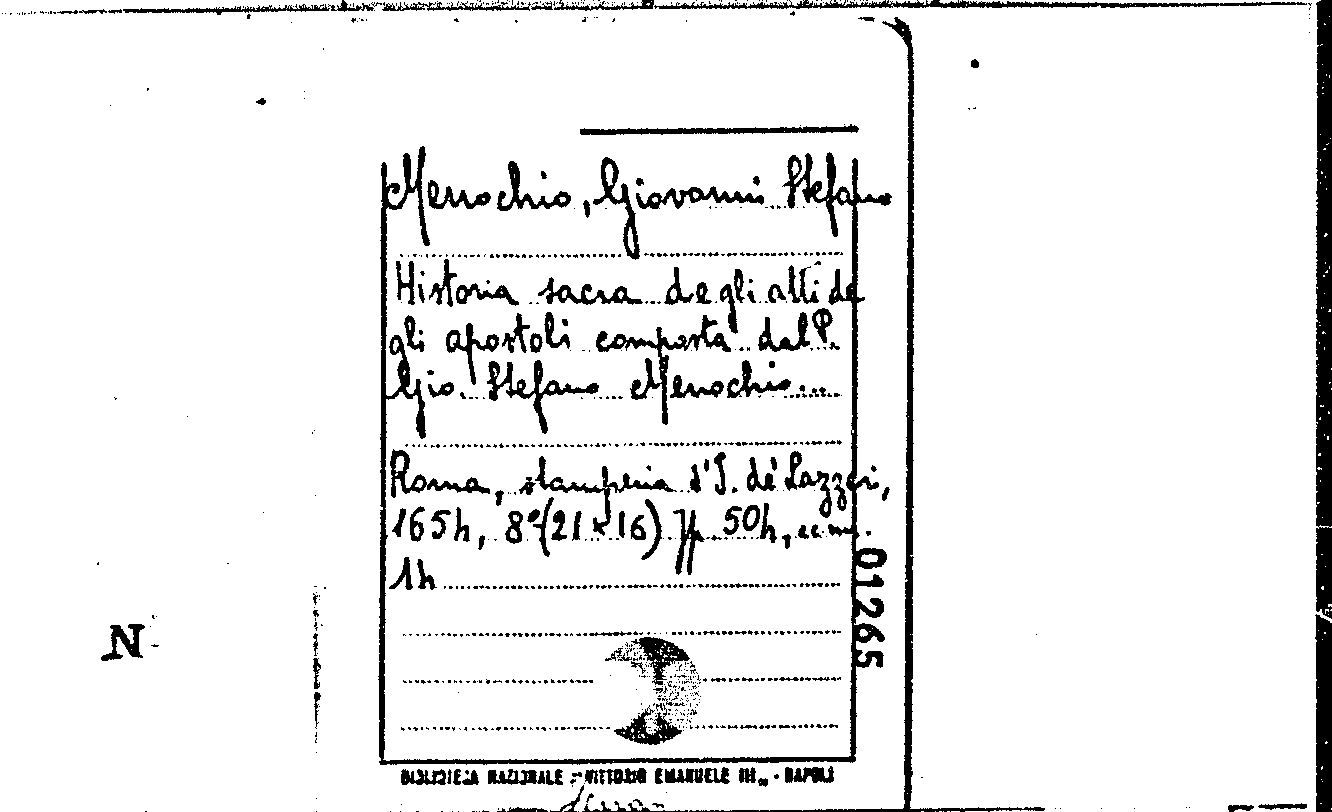 Menochio, Giovanni Stefano
Historia sacra degli atti de
gli apostoli composta dal P.
Gio. Stefano Menochio...
Roma, stamperia d'I. de' Lazzeri,
1654, 8° (21 x 16) pp. 504,
14
01265
N
BIBLIOTECA NAZIONALE "VITTORIO EMANUELE III" - NAPOLI